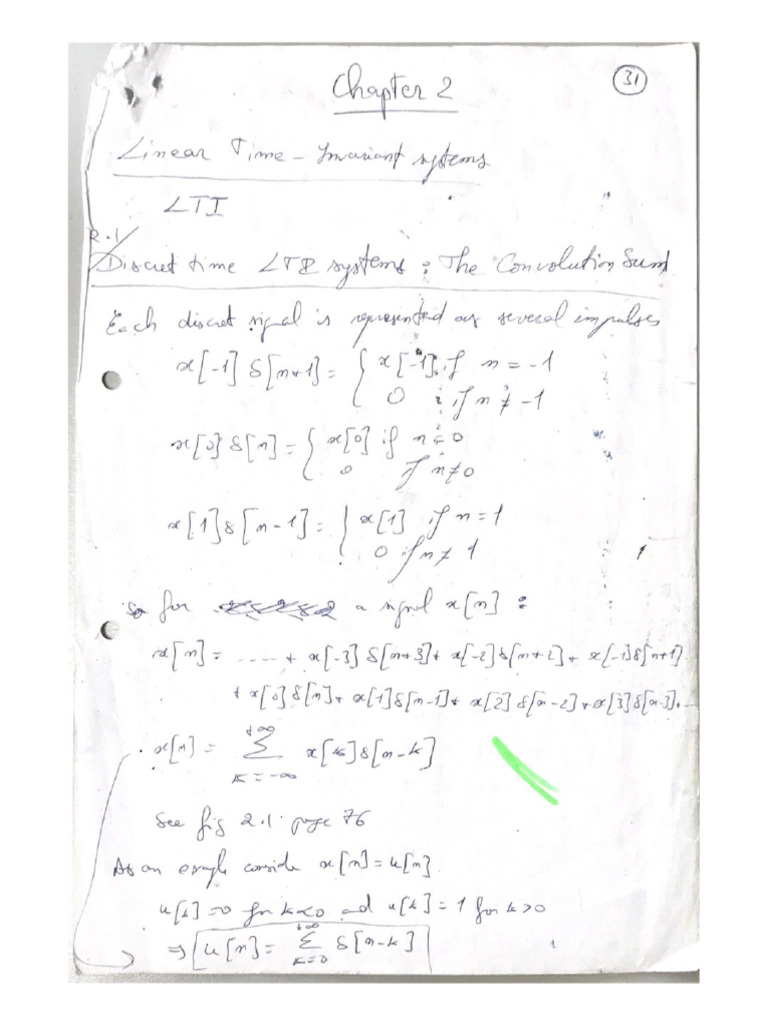 Chapter 2
31
Linear Time - Invariant systems
LTI
2.1
Discret time LTI systems : The Convolution Sum
Each discret signal is represented as several impulses
x[-1] δ[n+1] = { x[-1] if n = -1
0 if n ≠ -1
x[0] δ[n] = { x[0] if n = 0
0 if n ≠ 0
x[1] δ[n-1] = { x[1] if n = 1
0 if n ≠ 1
so for a signal x[n] :
x[n] = ..... + x[-3] δ[n+3] + x[-2] δ[n+2] + x[-1] δ[n+1]
+ x[0] δ[n] + x[1] δ[n-1] + x[2] δ[n-2] + x[3] δ[n-3] .
. x[n] = +∞ Σ k = -∞ x[k] δ[n-k]
See fig 2.1 . page 76
As an example consider x[n] = u[n]
u[k] = 0 for k<0 and u[k] = 1 for k>0
⇒ u[n] = +∞ Σ k=0 δ[n-k]